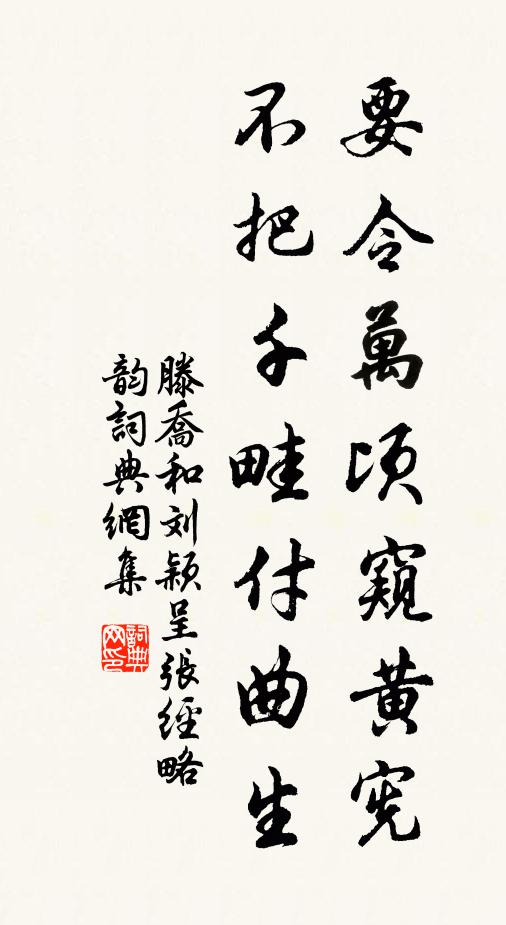 要令萬頃窺黃宪
不把千畦付曲生
滕喬和刘颖呈張經略
韵詞典網集
詞典网印